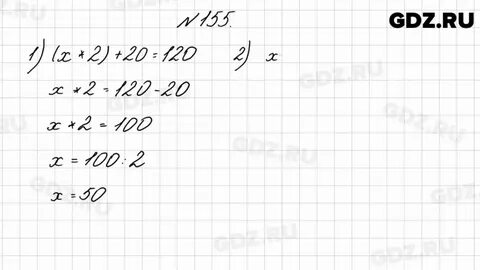 №155.
GDZ.RU
1) (x * 2) + 20 = 120
2) x
x * 2 = 120 - 20
x * 2 = 100
x = 100 : 2
x = 50
GDZ.RU
GDZ.RU
GDZ.RU
GDZ.RU
GDZ.RU
GDZ.RU
GDZ.RU